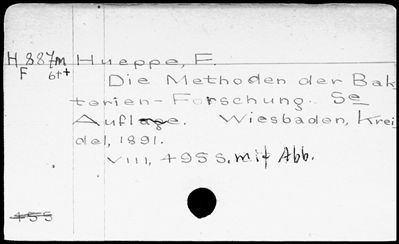 H 887m Hueppe, F.
F 6t+
Die Methoden der Bak
terien-Forschung. 5e
Auflage. Wiesbaden, Krei
del, 1891.
VIII, 495 S. mit Abb.
455